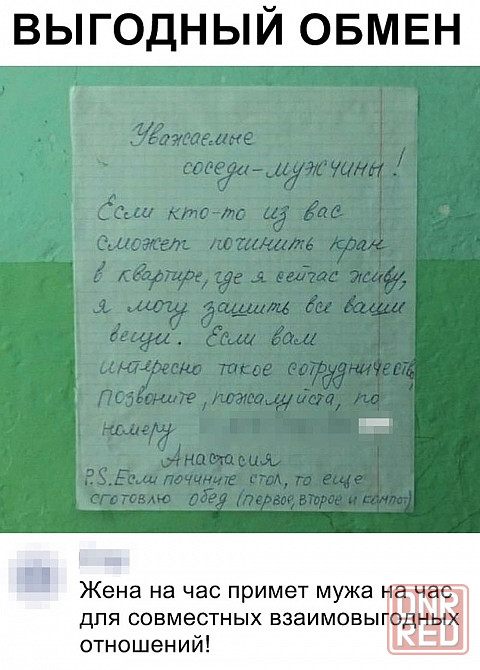 ВЫГОДНЫЙ ОБМЕН
Уважаемые
соседи-мужчины!
Если кто-то из вас
сможет починить кран
в квартире, где я сейчас живу,
я могу зашить все ваши
вещи. Если вам
интересно такое сотрудничеств
позвоните, пожалуйста, по
номеру
Анастасия
P.S. Если почините стол, то еще
сготовлю обед (первое, второе и компот)
Жена на час примет мужа на час
для совместных взаимовыгодных
отношений!
DNR
RED